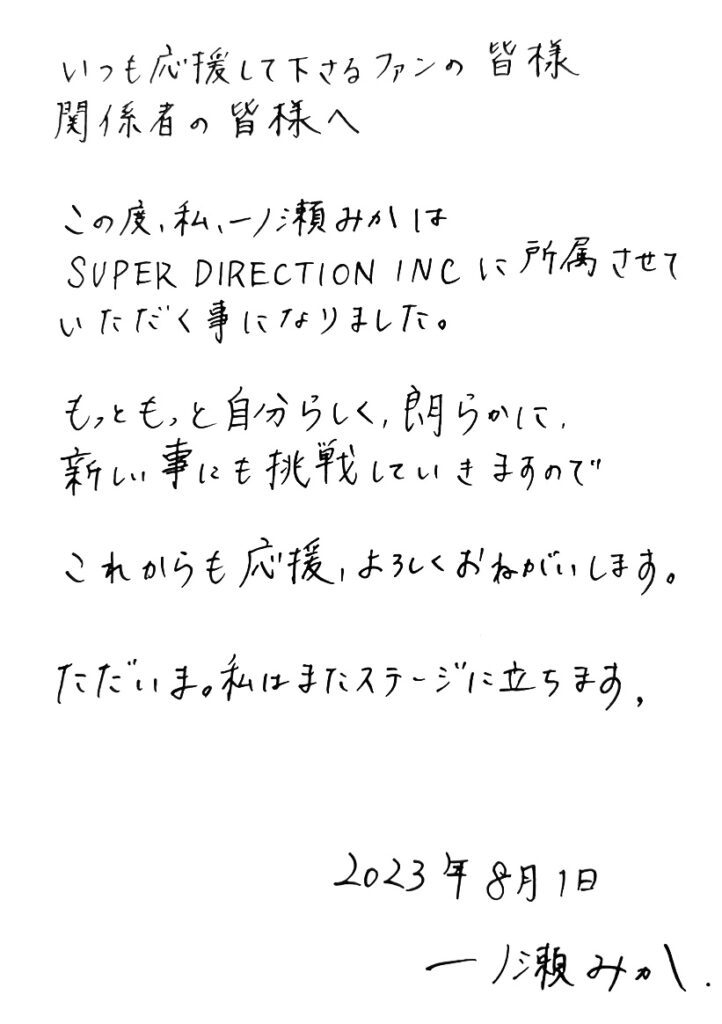 いつも応援して下さるファンの皆様
関係者の皆様へ
この度、私、一ノ瀬みかは
SUPER DIRECTION INC に所属させて
いただく事になりました。
もっともっと自分らしく、朗らかに、
新しい事にも挑戦していきますので
これからも応援、よろしくおねがいします。
ただいま。私はまたステージに立ちます、
2023年8月1日
一ノ瀬みか.